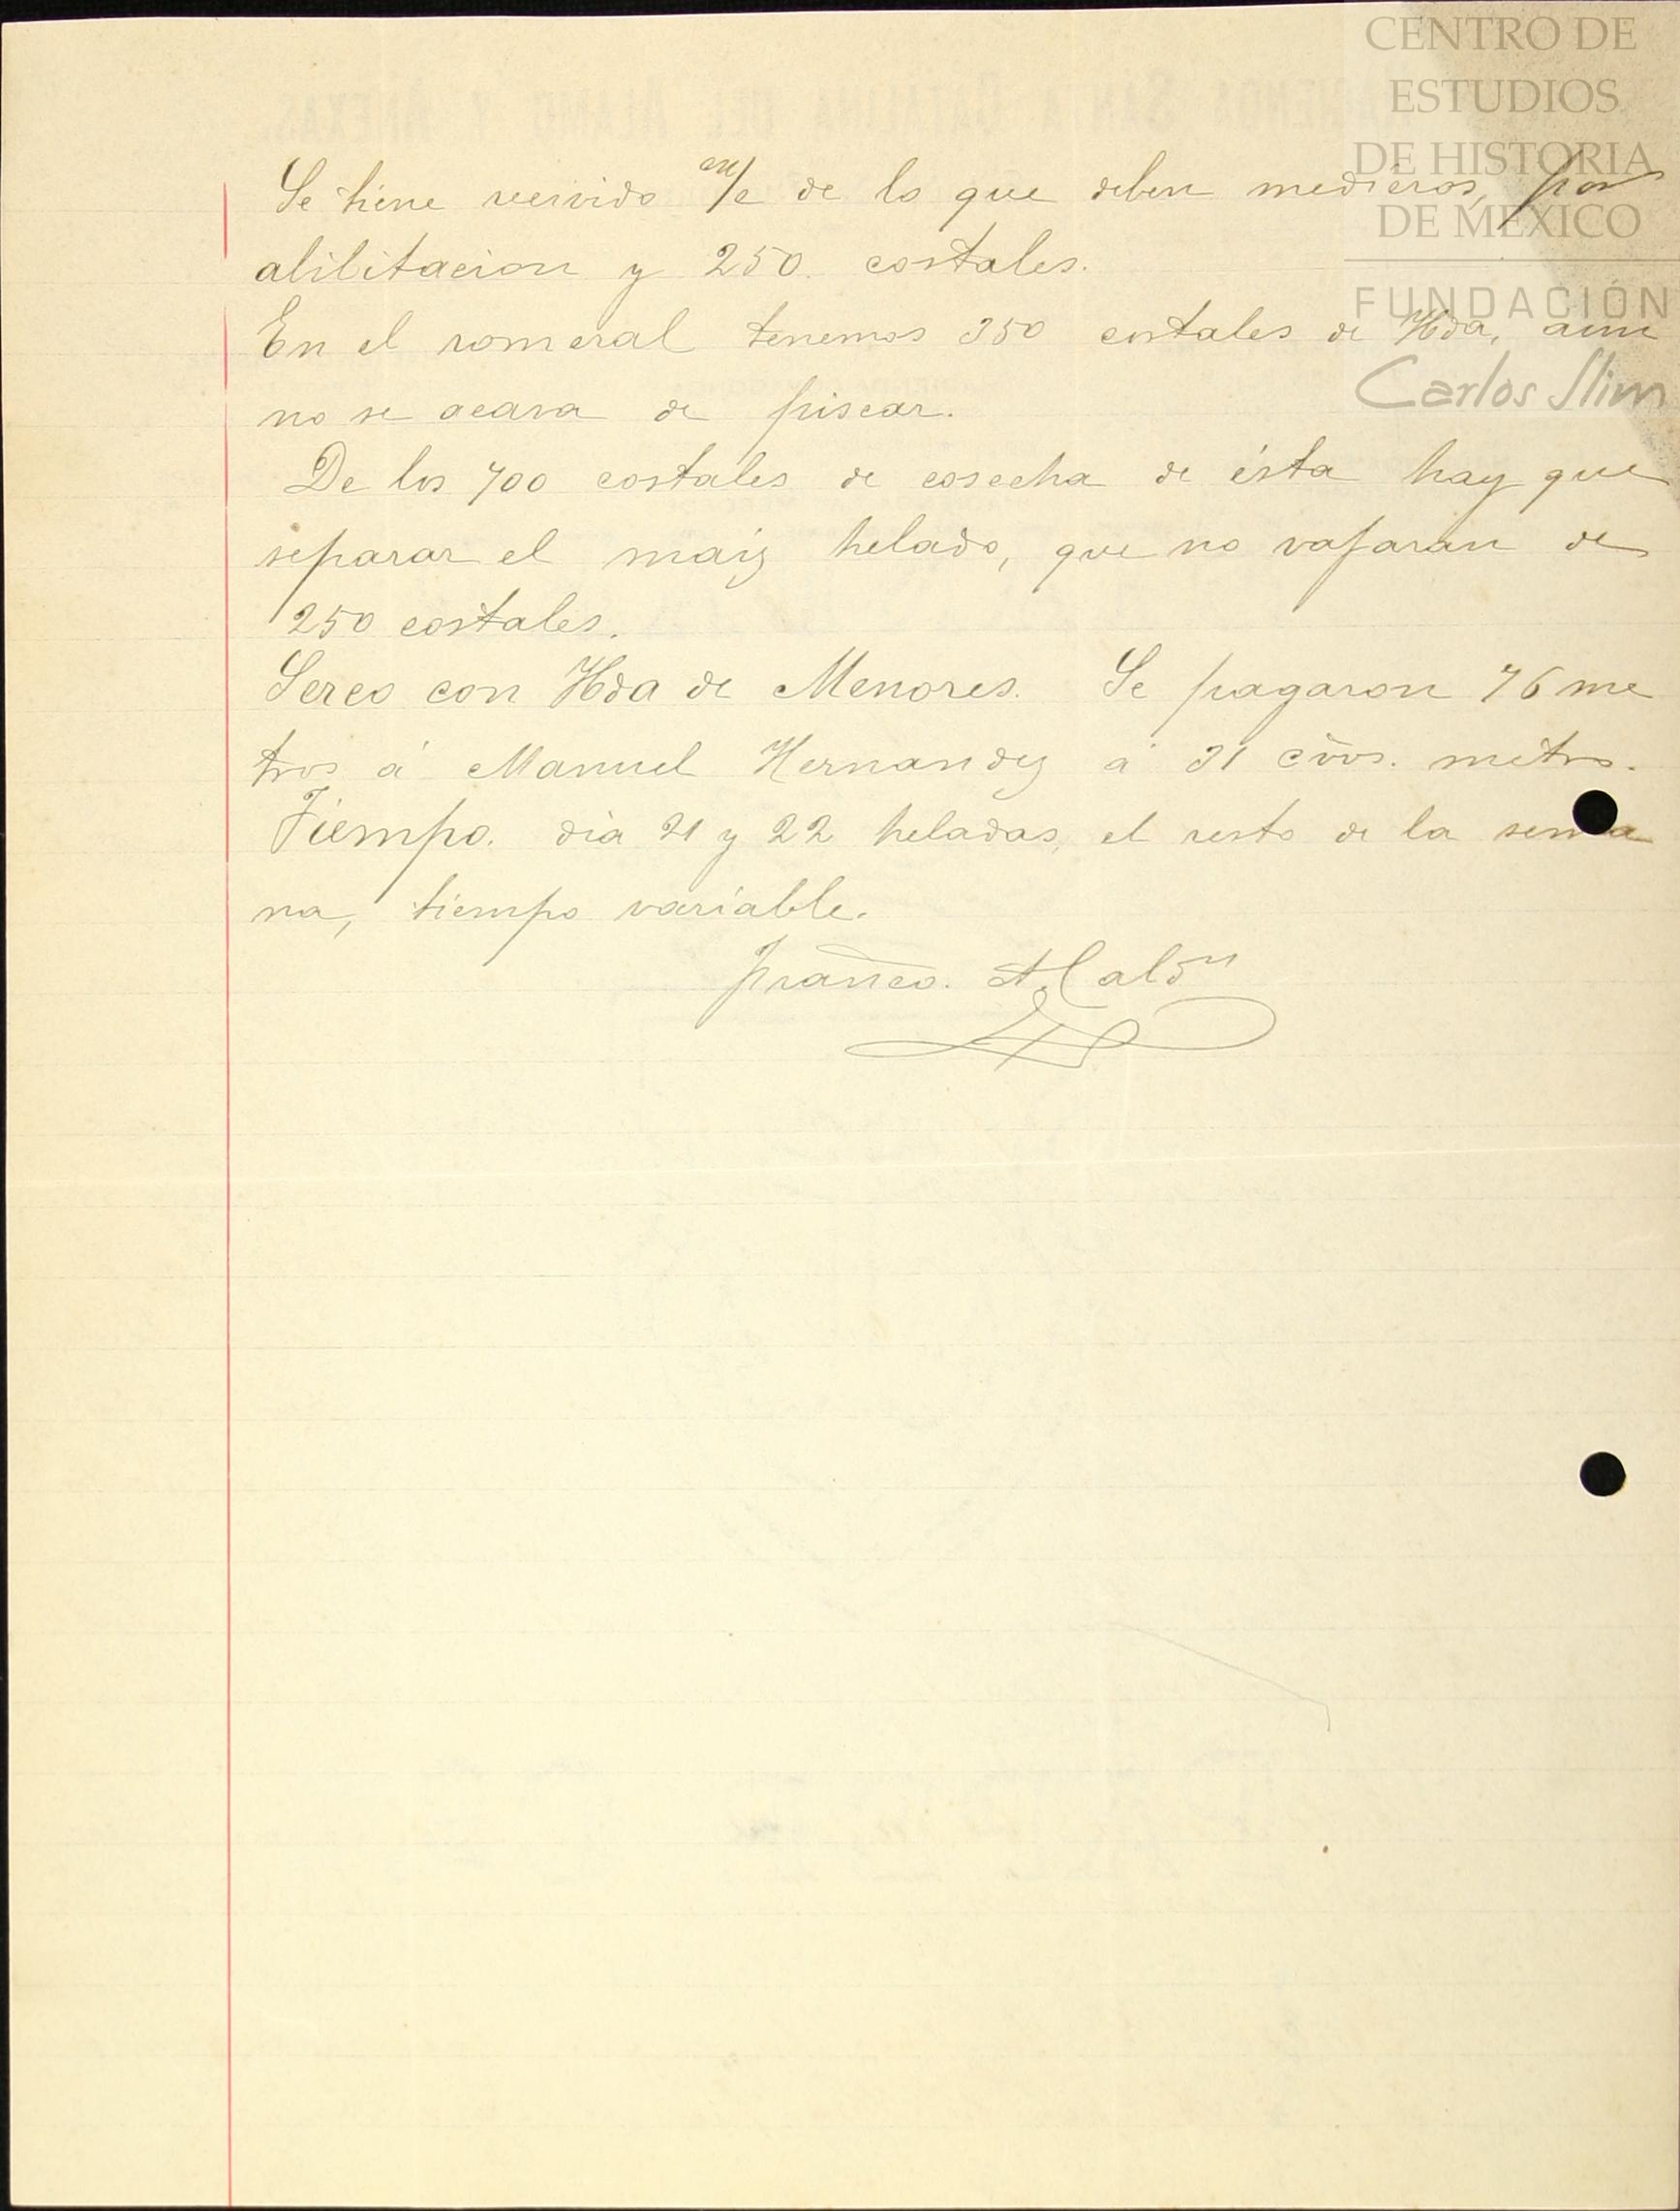 CENTRO DE
ESTUDIOS
DE HISTORIA
DE MÉXICO
FUNDACIÓN
Carlos Slim
Se tiene recivido de lo que deben medieros, por
alilitacion y 250. costales.
En el romeral tenemos 350 costales de Hda, aun
no se acava de piscar.
De los 700 costales de cosecha de ésta hay que
separar el maiz helado, que no vajaran de
250 costales.
Serco con Hda de Menores. Se pagaron 76 me
tros á Manuel Hernandez á 31 cvos. metro.
Tiempo. dia 21 y 22 heladas, el resto de la sema
na, tiempo variable.
Franco.